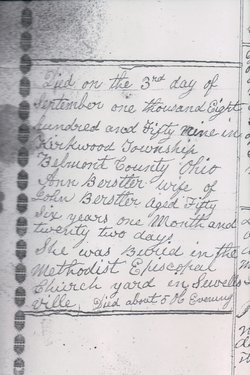 Died on the 3rd day of
September one thousand Eight
hundred and Fifty nine in
Kirkwood Township
Belmont County Ohio
Ann Berstler wife of
John Berstler Aged Fifty
Six years one Month and
twenty two days
She was Buried in the
Methodist Episcopal
Church yard in Sewells
ville. Died about 5 Evening